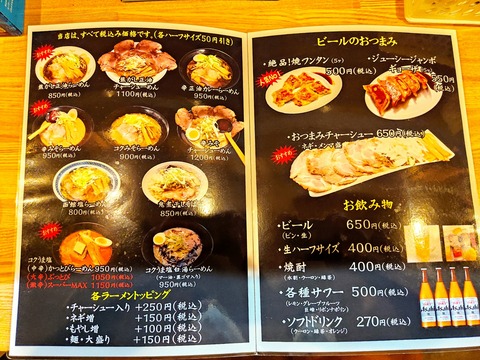 当店は、すべて税込み価格です。(各ハーフサイズ50円引き)
焦がせ正油らーめん
850円(税込)
焦がせ正油
チャーシューめん
1100円(税込)
辛正油カレーらーめん
950円(税込)
おすすめ
辛みそらーめん
950円(税込)
コクみそらーめん
900円(税込)
辛みそ
チャーシューめん
1200円(税込)
函館塩らーめん
800円(税込)
900円(税込)
おすすめ
コクうま塩
(中辛) かつとびらーめん 950円(税込)
(大辛) ぶっとび 1050円(税込)
(激辛) スーパーMAX 1150円(税込)
コクうま塩
950円(税込)
各ラーメントッピング
・チャーシュー入り +250円(税込)
・ネギ増 +150円(税込)
・もやし増 +100円(税込)
・麺・大盛り +150円(税込)
ビールのおつまみ
・絶品!焼フンタン(5ヶ)
500円(税込)
人気No.1
・ジューシージャンボ
ギョーザ
・おつまみチャーシュー 650円(税込)
ネギ・メンマ
おすすめ
お飲み物
・ビール 650円(税込)
(ビン・生)
・生ハーフサイズ 400円(税込)
・焼酎 400円(税込)
(水割・ウーロン・緑茶)
・各種サワー 500円(税込)
(レモン・グレープフルーツ
巨峰・リボンナポリン)
・ソフトドリンク 270円(税込)
(ウーロン・緑茶・オレンジ)